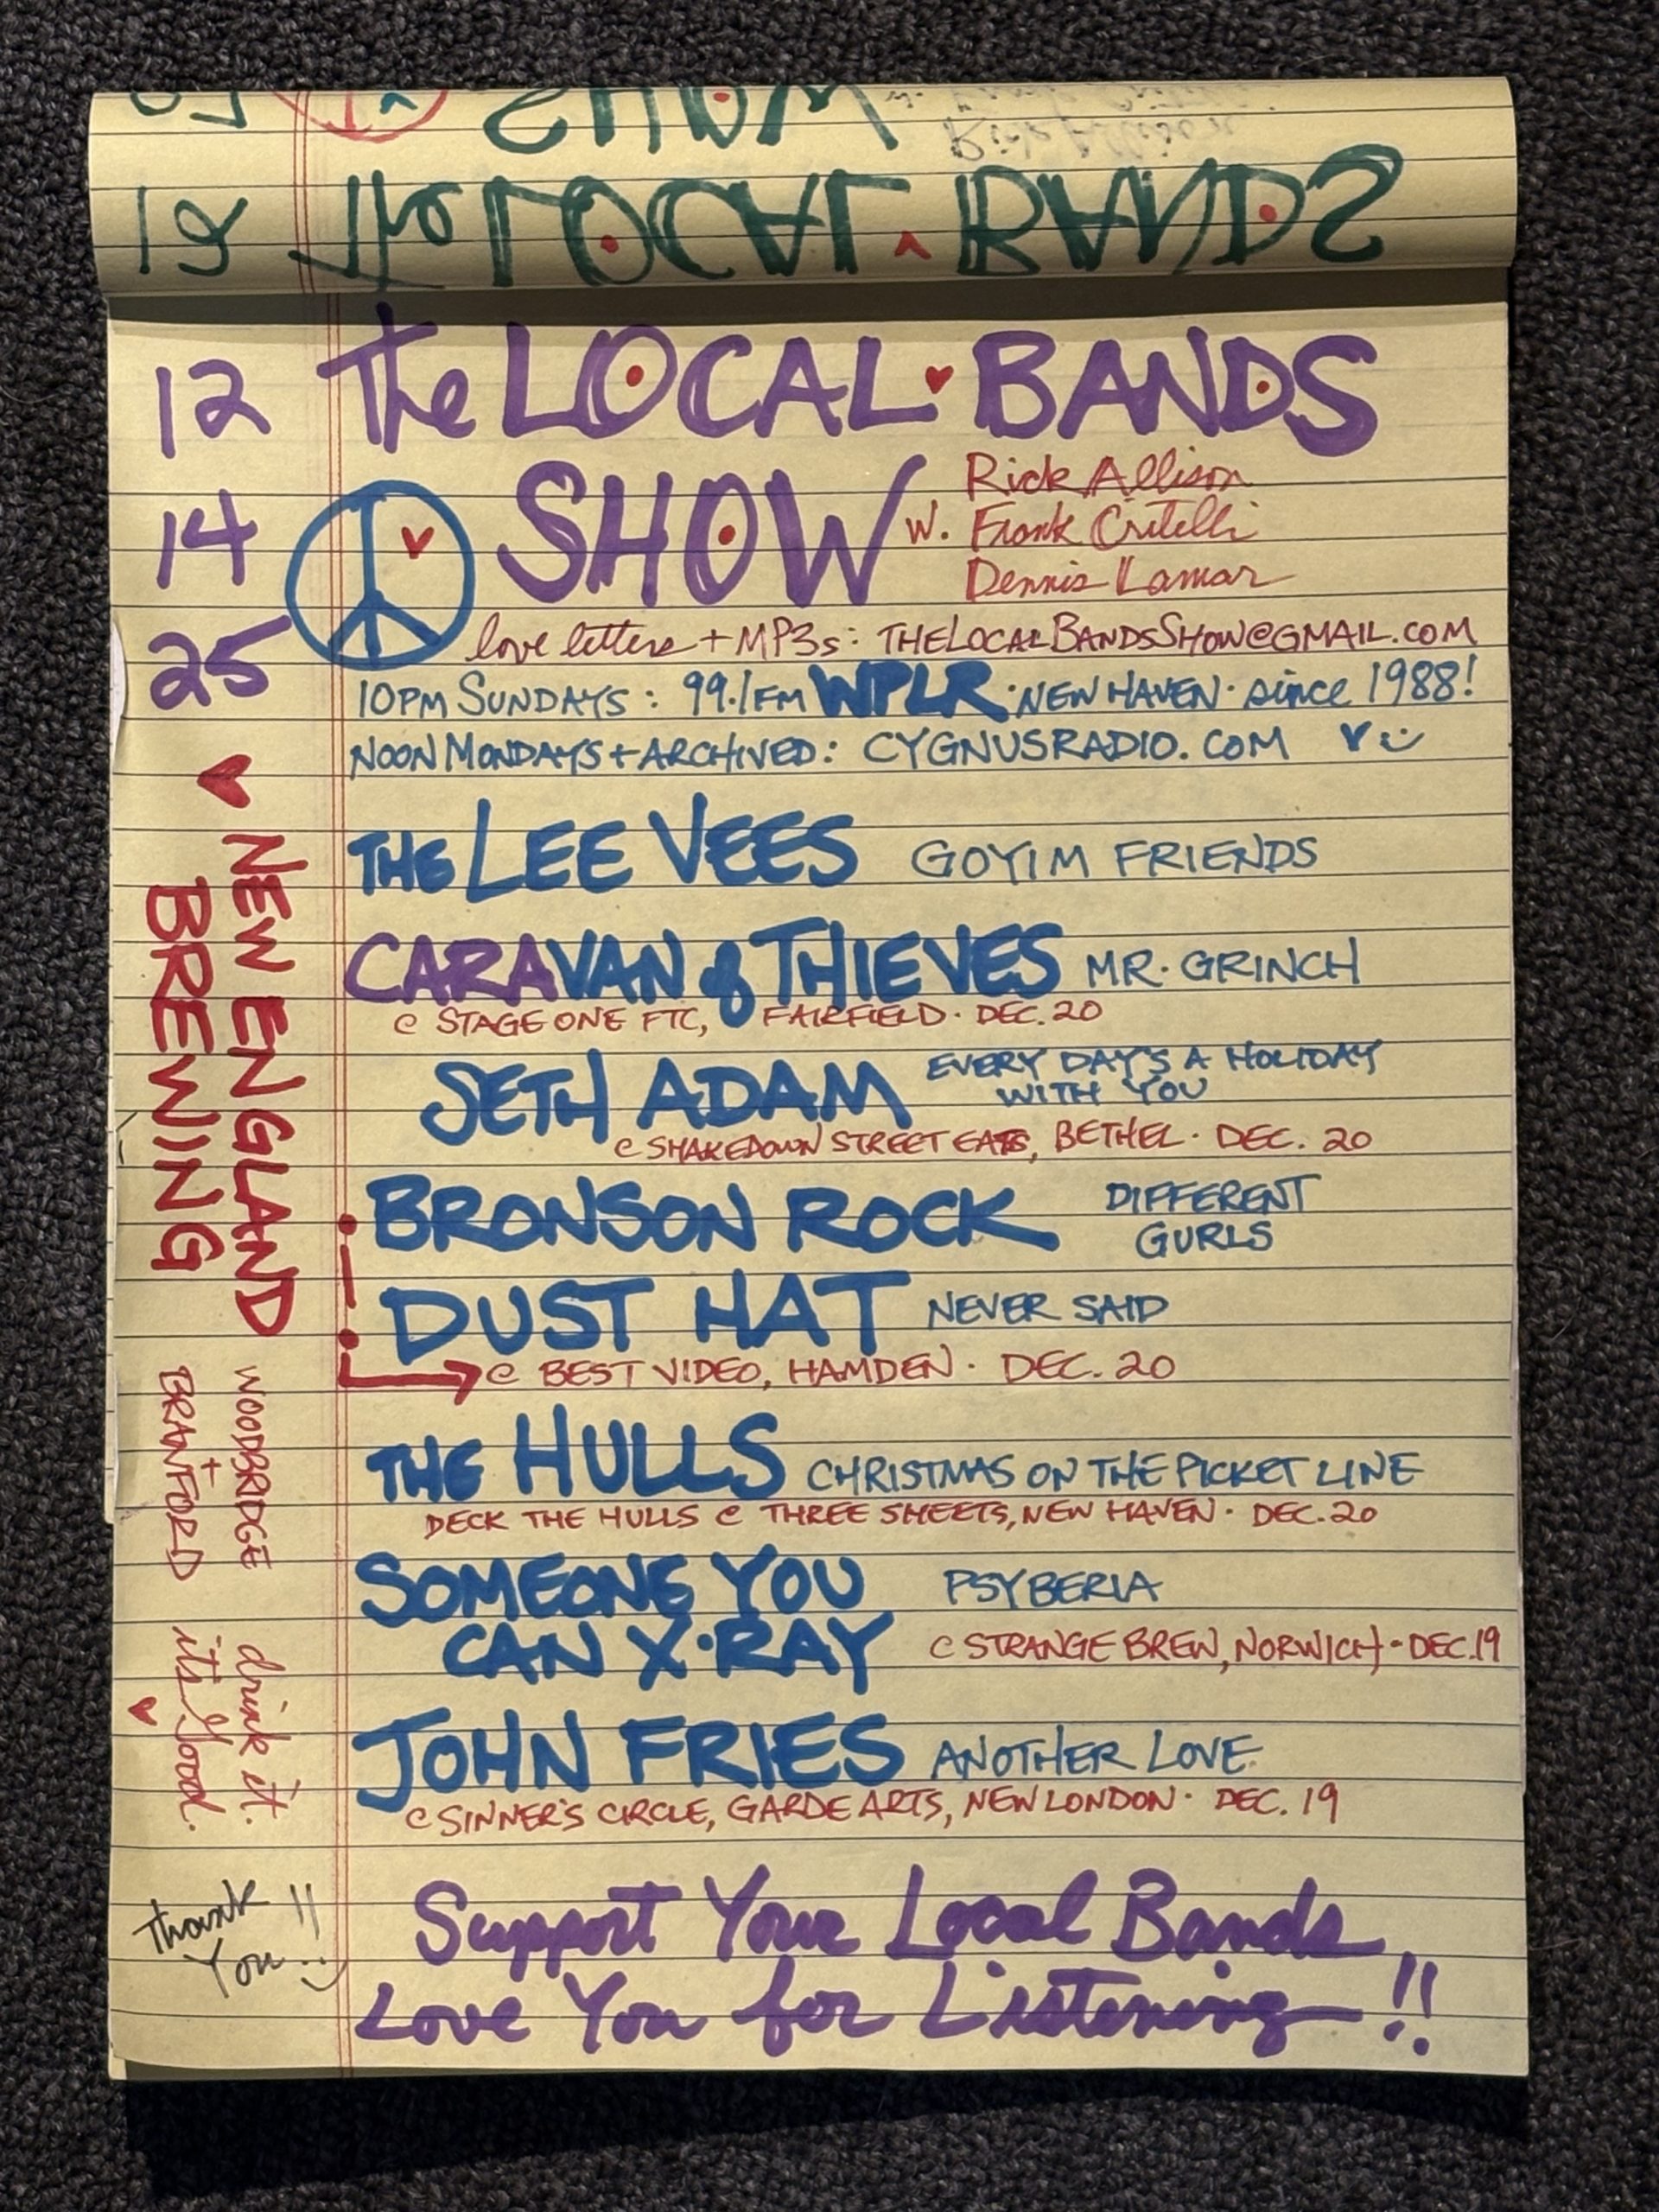 The LOCAL BANDS
SHOW
Rick Allison
12
The LOCAL · BANDS
SHOW
w. Rick Allison
Frank Critelli
Dennis Lamar
12
14
25
love letters + MP3s: THELOCALBANDSSHOW@GMAIL.COM
10PM SUNDAYS: 99.1FM WPLR · NEW HAVEN · since 1988!
NOON MONDAYS + ARCHIVED: CYGNUSRADIO.COM
THE LEE VEES GOYIM FRIENDS
CARAVAN of THIEVES MR. GRINCH
@ STAGE ONE FTC, FAIRFIELD · DEC. 20
SETH ADAM EVERY DAY'S A HOLIDAY
WITH YOU
@ SHAKEDOWN STREET EATS, BETHEL · DEC. 20
BRONSON ROCK DIFFERENT
GURLS
DUST HAT NEVER SAID
@ BEST VIDEO, HAMDEN · DEC. 20
THE HULLS CHRISTMAS ON THE PICKET LINE
DECK THE HULLS @ THREE SHEETS, NEW HAVEN · DEC. 20
SOMEONE YOU PSYBERIA
CAN X·RAY @ STRANGE BREW, NORWICH · DEC. 19
JOHN FRIES ANOTHER LOVE
@ SINNER'S CIRCLE, GARDE ARTS, NEW LONDON · DEC. 19
Support Your Local Bands
Love You for Listening!!
NEW ENGLAND
BREWING
WOODBRIDGE
+
BRANFORD
drink it.
it's good.
Thank
You!!